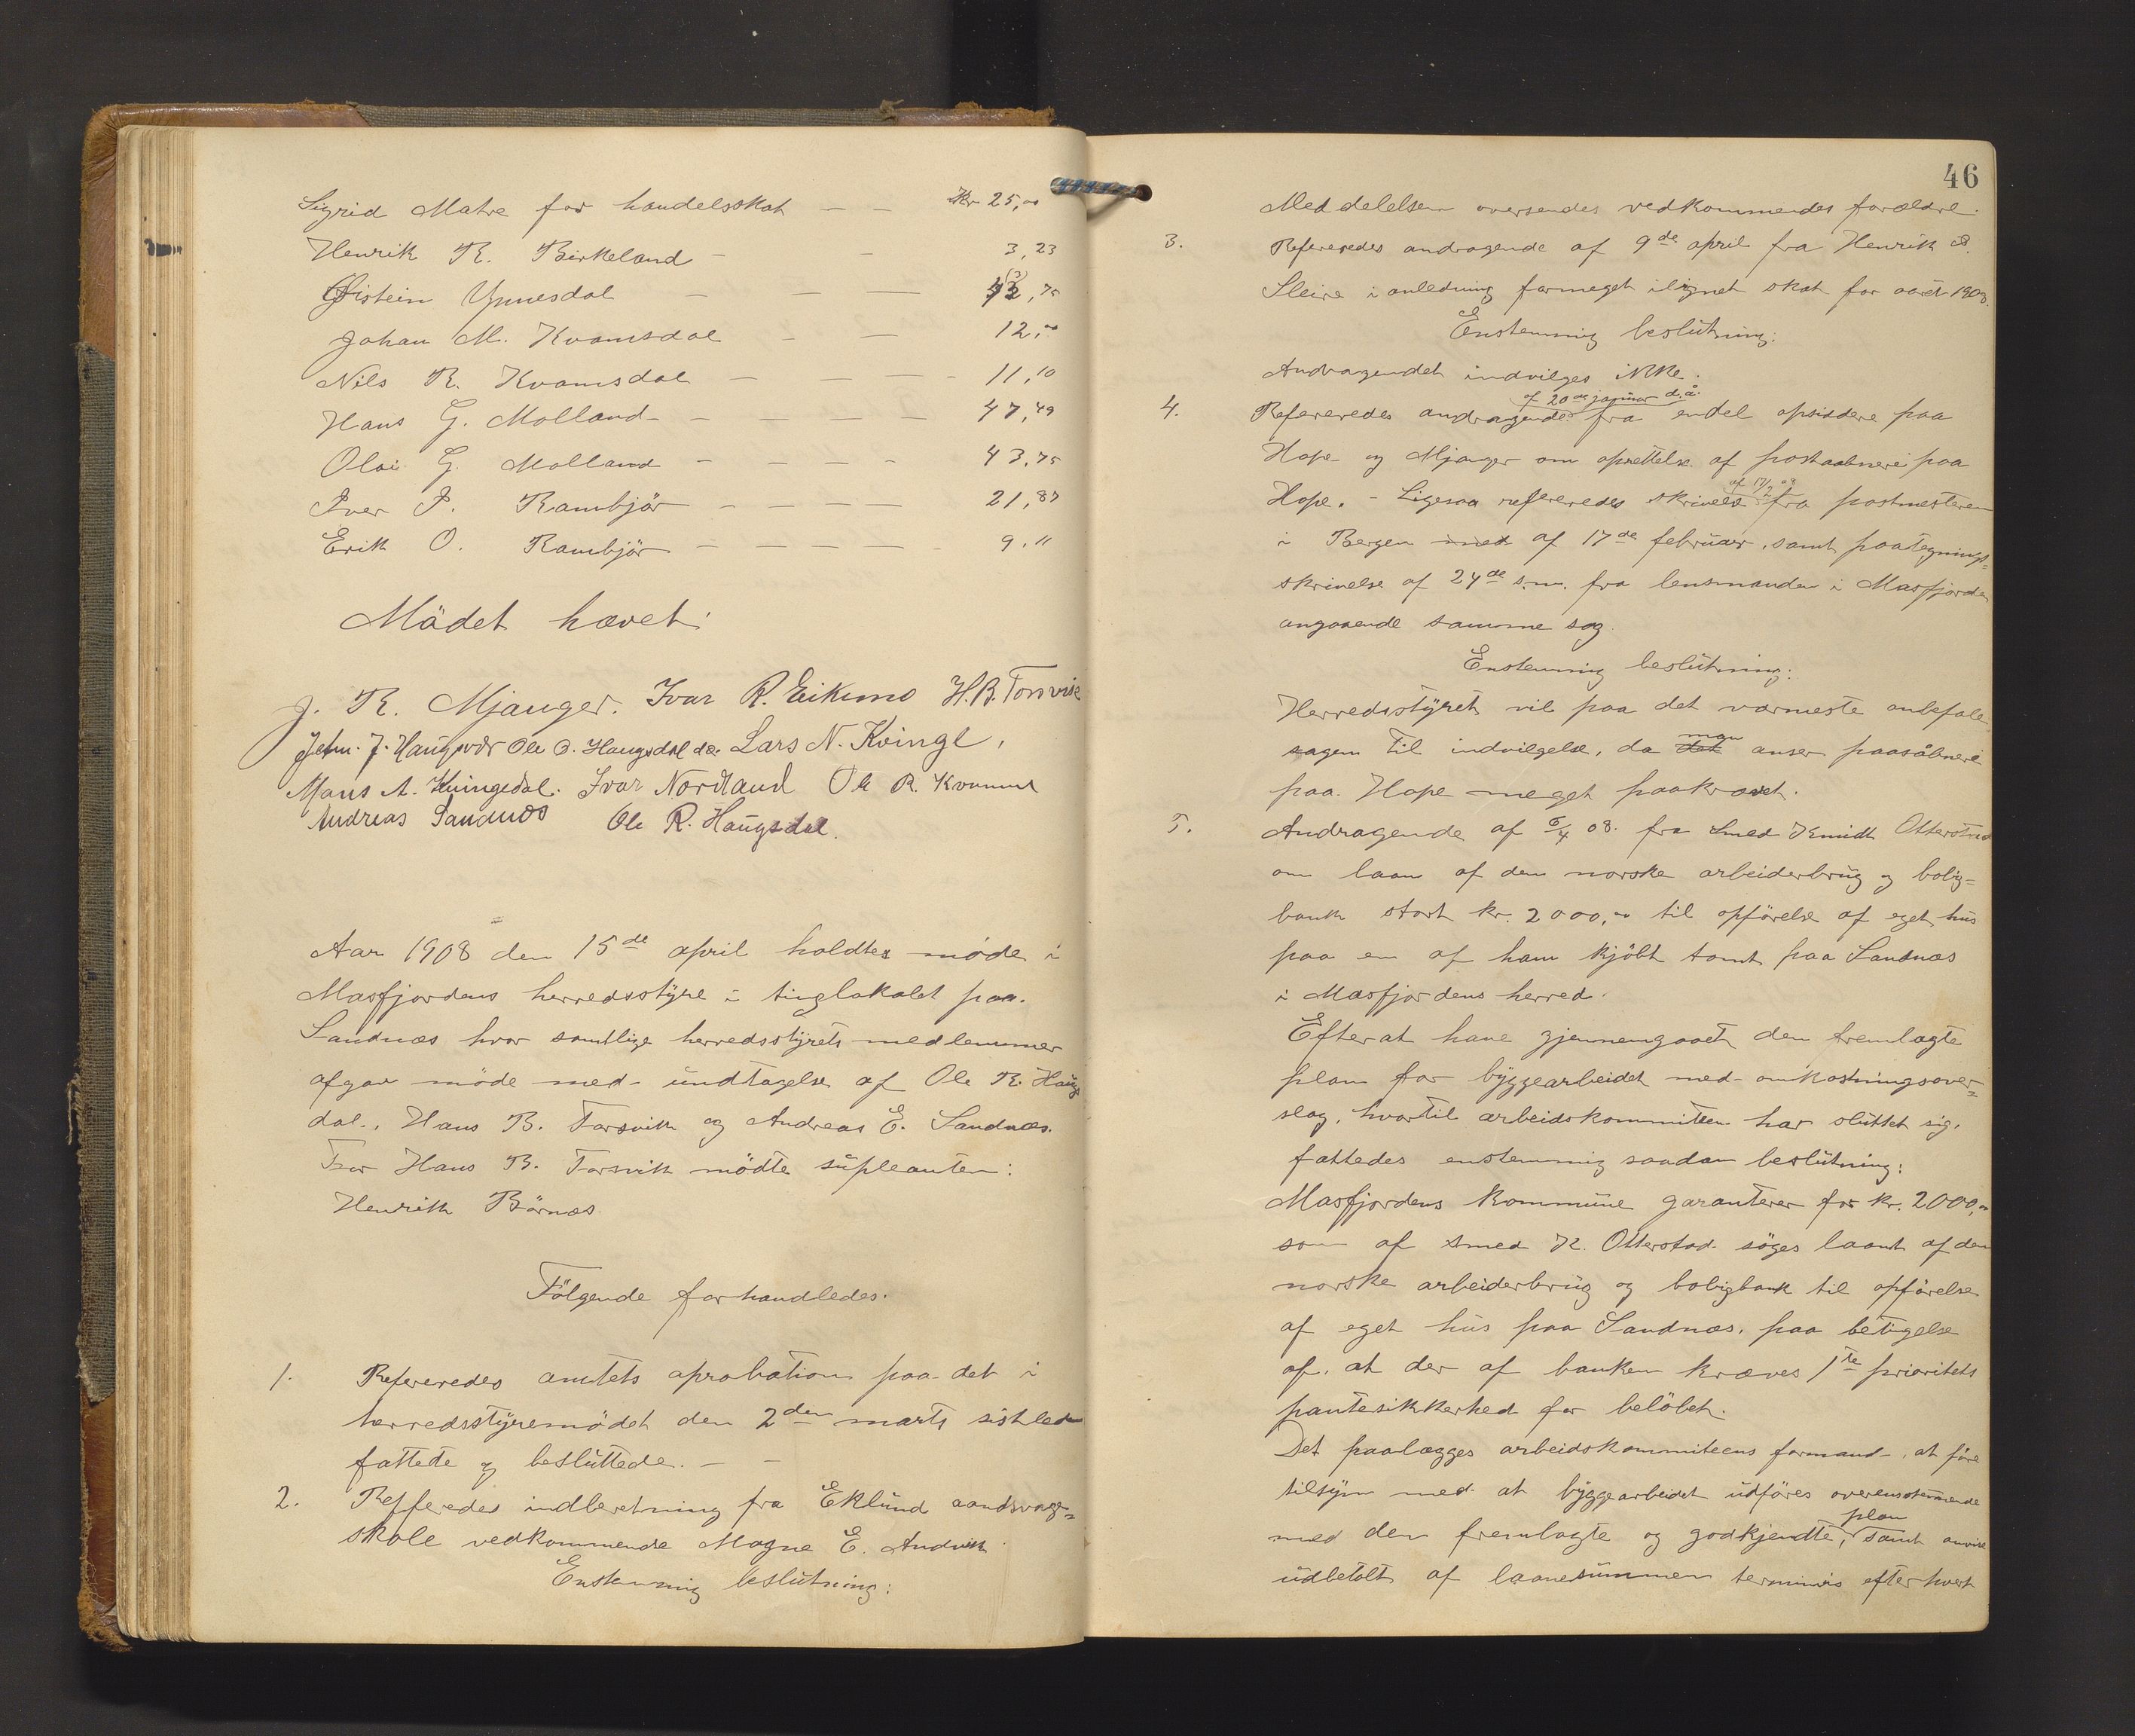 Sigrid Matre for handelsskat — — Kr 25,00
Henrik R. Birkeland — — 3,23
Øistein Ynnesdal — — — 12,75
Johan M. Kvamsdal — — 12,00
Nils R. Kvamsdal — — — 11,10
Hans G. Molland — — — — 47,49
Olai G. Molland — — — — 43,75
Iver I. Rambjör — — — — 21,87
Erik O. Rambjör — — — — 9,11
Mödet hævet:
J. R. Mjanger. Ivar R. Eikemo H.B. Torsvik
Joh. J. Haugsvær Ole O. Haugsdal Lars N. Kvinge,
Mons A. Kvingedal. Ivar Nordland Ole R. Kvamme
Andreas Sandnes Ole R. Haugsdal.
Aar 1908 den 15de april holdtes möde i
Masfjordens herredsstyre i tinglokalet paa
Sandnæs hvor samtlige herredsstyrets medlemmer
afgav möde med undtagelse af Ole R. Haugs
dal., Hans B. Torsvik og Andreas E. Sandnæs.
For Hans B. Torsvik mödte supleanten:
Henrik Börnæs
Fölgende forhandledes.
1. Refereredes amtets aprobation paa det i
herredsstyremödet den 2den marts sistleden
fattete og besluttede. — —
2. Refferedes indberetning fra Eklund aandsvage=
skole vedkommende Magne E. Andvik
Enstemmig beslutning:
46
Meddelelsen oversendes vedkommendes forældre.
3. Refereredes andragende af 9de april fra Henrik
Sleire i anledning formeget ilignet skat for aaret 1908.
Enstemmig beslutning:
Andragendet indvilges ikke.
af 20de januar d.å.
4. Refereredes andragende fra endel opsiddere paa
Hope og Mjanger om oprettelse af postaabneri paa
af 17/2 08
Hope. - Ligesaa refereredes skrivelse fra postmesteren
i Bergen med af 17de februar, samt paategnings=
skrivelse af 24de s.m. fra lensmanden i Masfjorden
angaaende samme sag.
Enstemmig beslutning:
Herredsstyret vil paa det varmeste anbefale
man
sagen til indvilgelse, da det anser paasåbneri
paa Hope meget paakrævet.
5. Andragende af 6/4 08. fra smed Knudt Otterstad
om laan af den norske arbeiderbrug og bolig=
bank stort kr. 2000,00 til opförelse af eget hus
paa en af ham kjöbt tomt paa Sandnæs
i Masfjordens herred.
Efterat have gjennemgaaet den fremlagte
plan for byggearbeidet med omkostningsover=
slag, hvortil arbeidskommiteen har sluttet sig,
fattedes enstemmig saadan beslutning:
Masfjordens kommune garanterer for kr. 2000,00
som af smed K. Otterstad söges laant af den
norske arbeiderbrug og boligbank til opförelse
af eget hus paa Sandnæs, paa betingelse
af, at der af banken kræves 1te prioritets
pantesikkerhed for belöbet.
Det paalægges arbeidskommiteens formand, at före
tilsyn med at byggearbeidet udföres overensstemmende
plan
med den fremlagte og godkjendte, samt anvise
udbetalt af laanesummen terminvis efterhvert